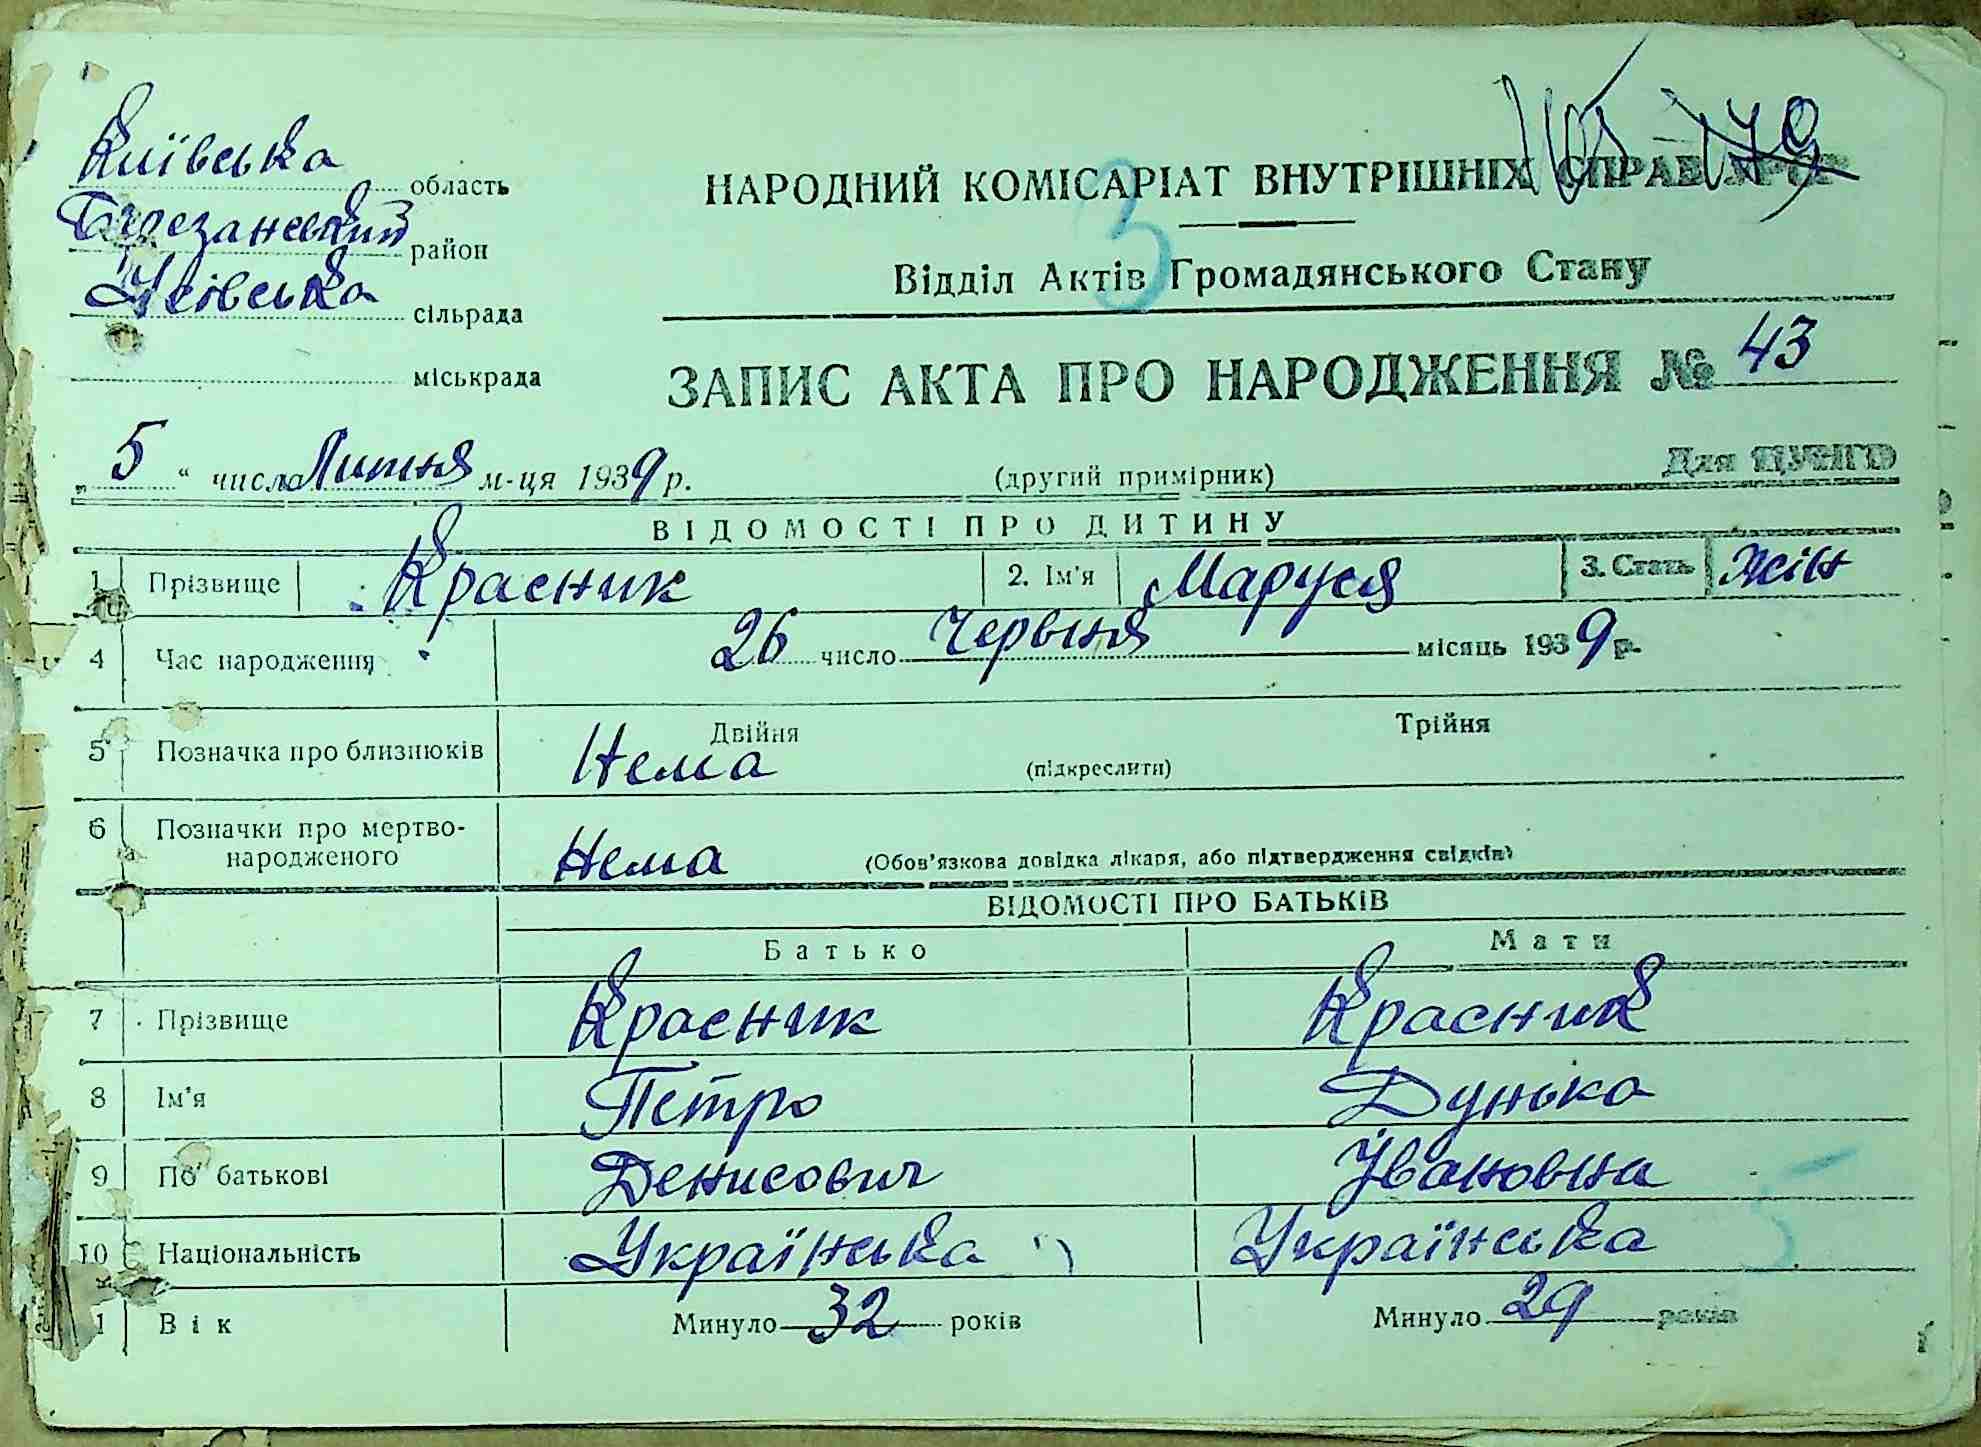 Київська область
Березанський район
сільрада
міськрада
НАРОДНИЙ КОМІСАРІАТ ВНУТРІШНІХ СПРАВ УРСР
Відділ Актів Громадянського Стану
3
ЗАПИС АКТА ПРО НАРОДЖЕННЯ № 43
„ 5 “ числа Липня м-ця 1939 р.
(другий примірник)
Для ЦУНГО
ВІДОМОСТІ ПРО ДИТИНУ
1 Прізвище Красник 2. Ім'я Маруся 3. Стать жін
4 Час народження 26 число Червня місяць 1939 р.
5 Позначка про близнюків Нема Двійня (підкреслити) Трійня
6 Позначки про мертво-
народженого Нема (Обов'язкова довідка лікаря, або підтвердження свідків)
ВІДОМОСТІ ПРО БАТЬКІВ
Батько Мати
7 Прізвище Красник Красник
8 Ім'я Петро Дунька
9 По батькові Денисович Івановна
10 Національність Українська Українська
11 Вік Минуло 32 років Минуло 29 років